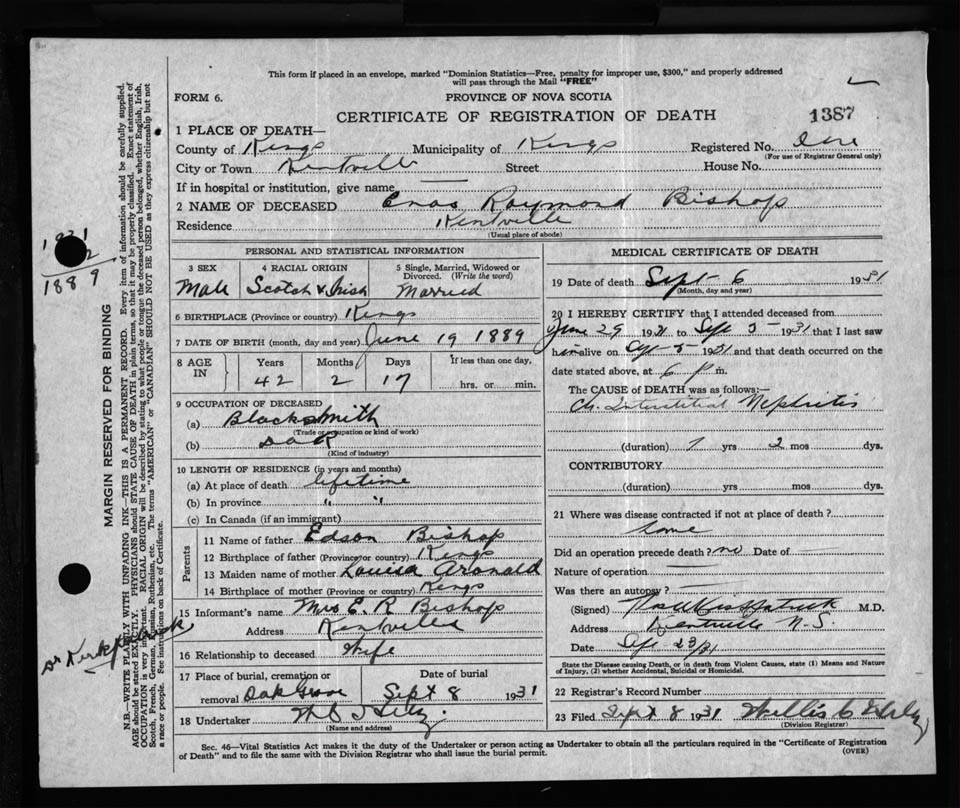 This form if placed in an envelope, marked "Dominion Statistics—Free, penalty for improper use, $300," and properly addressed
will pass through the Mail "FREE"
FORM 6.
PROVINCE OF NOVA SCOTIA
CERTIFICATE OF REGISTRATION OF DEATH
1387
1 PLACE OF DEATH—
County of Kings Municipality of Kings Registered No.
(For use of Registrar General only)
City or Town Kentville Street House No.
If in hospital or institution, give name
2 NAME OF DECEASED Enos Raymond Bishop
Residence Kentville
(Usual place of abode)
PERSONAL AND STATISTICAL INFORMATION
3 SEX 4 RACIAL ORIGIN 5 Single, Married, Widowed or Divorced. (Write the word)
Male Scotch & Irish Married
6 BIRTHPLACE (Province or country) Kings
7 DATE OF BIRTH (month, day and year) June 19 1889
8 AGE IN Years Months Days If less than one day,
42 2 17 hrs. or min.
9 OCCUPATION OF DECEASED
(a) Blacksmith
(Trade or occupation or kind of work)
(b)
(Kind of industry)
10 LENGTH OF RESIDENCE (in years and months)
(a) At place of death lifetime
(b) In province " "
(c) In Canada (if an immigrant)
Parents
11 Name of father Edson Bishop
12 Birthplace of father (Province or country) Kings
13 Maiden name of mother Louisa
14 Birthplace of mother (Province or country) Kings
15 Informant's name Mrs E. R Bishop
Address Kentville
16 Relationship to deceased Wife
17 Place of burial, cremation or Date of burial
removal Oak Grove Sept 8 1931
18 Undertaker
(Name and address)
MEDICAL CERTIFICATE OF DEATH
19 Date of death Sept 6 1931
(Month, day and year)
20 I HEREBY CERTIFY that I attended deceased from
June 29 1931 to Sept 5 - 1931 that I last saw
him alive on Sept 5 1931 and that death occurred on the
date stated above, at 6 p m.
The CAUSE of DEATH was as follows:—
Ch. Interstitial Nephritis
(duration) 1 yrs 2 mos dys.
CONTRIBUTORY
(duration) yrs mos dys.
21 Where was disease contracted if not at place of death?
home
Did an operation precede death? no Date of
Nature of operation
Was there an autopsy
(Signed) M.D.
Address Kentville N.S.
Date Sep 23/31
State the Disease causing Death, or in death from Violent Causes, state (1) Means and Nature
of Injury, (2) whether Accidental, Suicidal or Homicidal.
22 Registrar's Record Number
23 Filed Sept 8 1931
(Division Registrar)
Sec. 46—Vital Statistics Act makes it the duty of the Undertaker or person acting as Undertaker to obtain all the particulars required in the "Certificate of Registration
of Death" and to file the same with the Division Registrar who shall issue the burial permit. (OVER)
MARGIN RESERVED FOR BINDING
N.B.—WRITE PLAINLY WITH UNFADING INK—THIS IS A PERMANENT RECORD. Every item of information should be carefully supplied.
AGE should be stated EXACTLY. PHYSICIANS should STATE CAUSE OF DEATH in plain terms, so that it may be properly classified. Exact statement of
OCCUPATION is very important. RACIAL ORIGIN will be described by stating to what people or tongue the deceased person belonged, whether English, Irish,
Scotch, French, German, Russian, Ruthenian, etc. The terms "AMERICAN" or "CANADIAN" SHOULD NOT BE USED as they express citizenship but not
a race or people. See instructions on back of Certificate.
1889
Dr Kirkpatrick